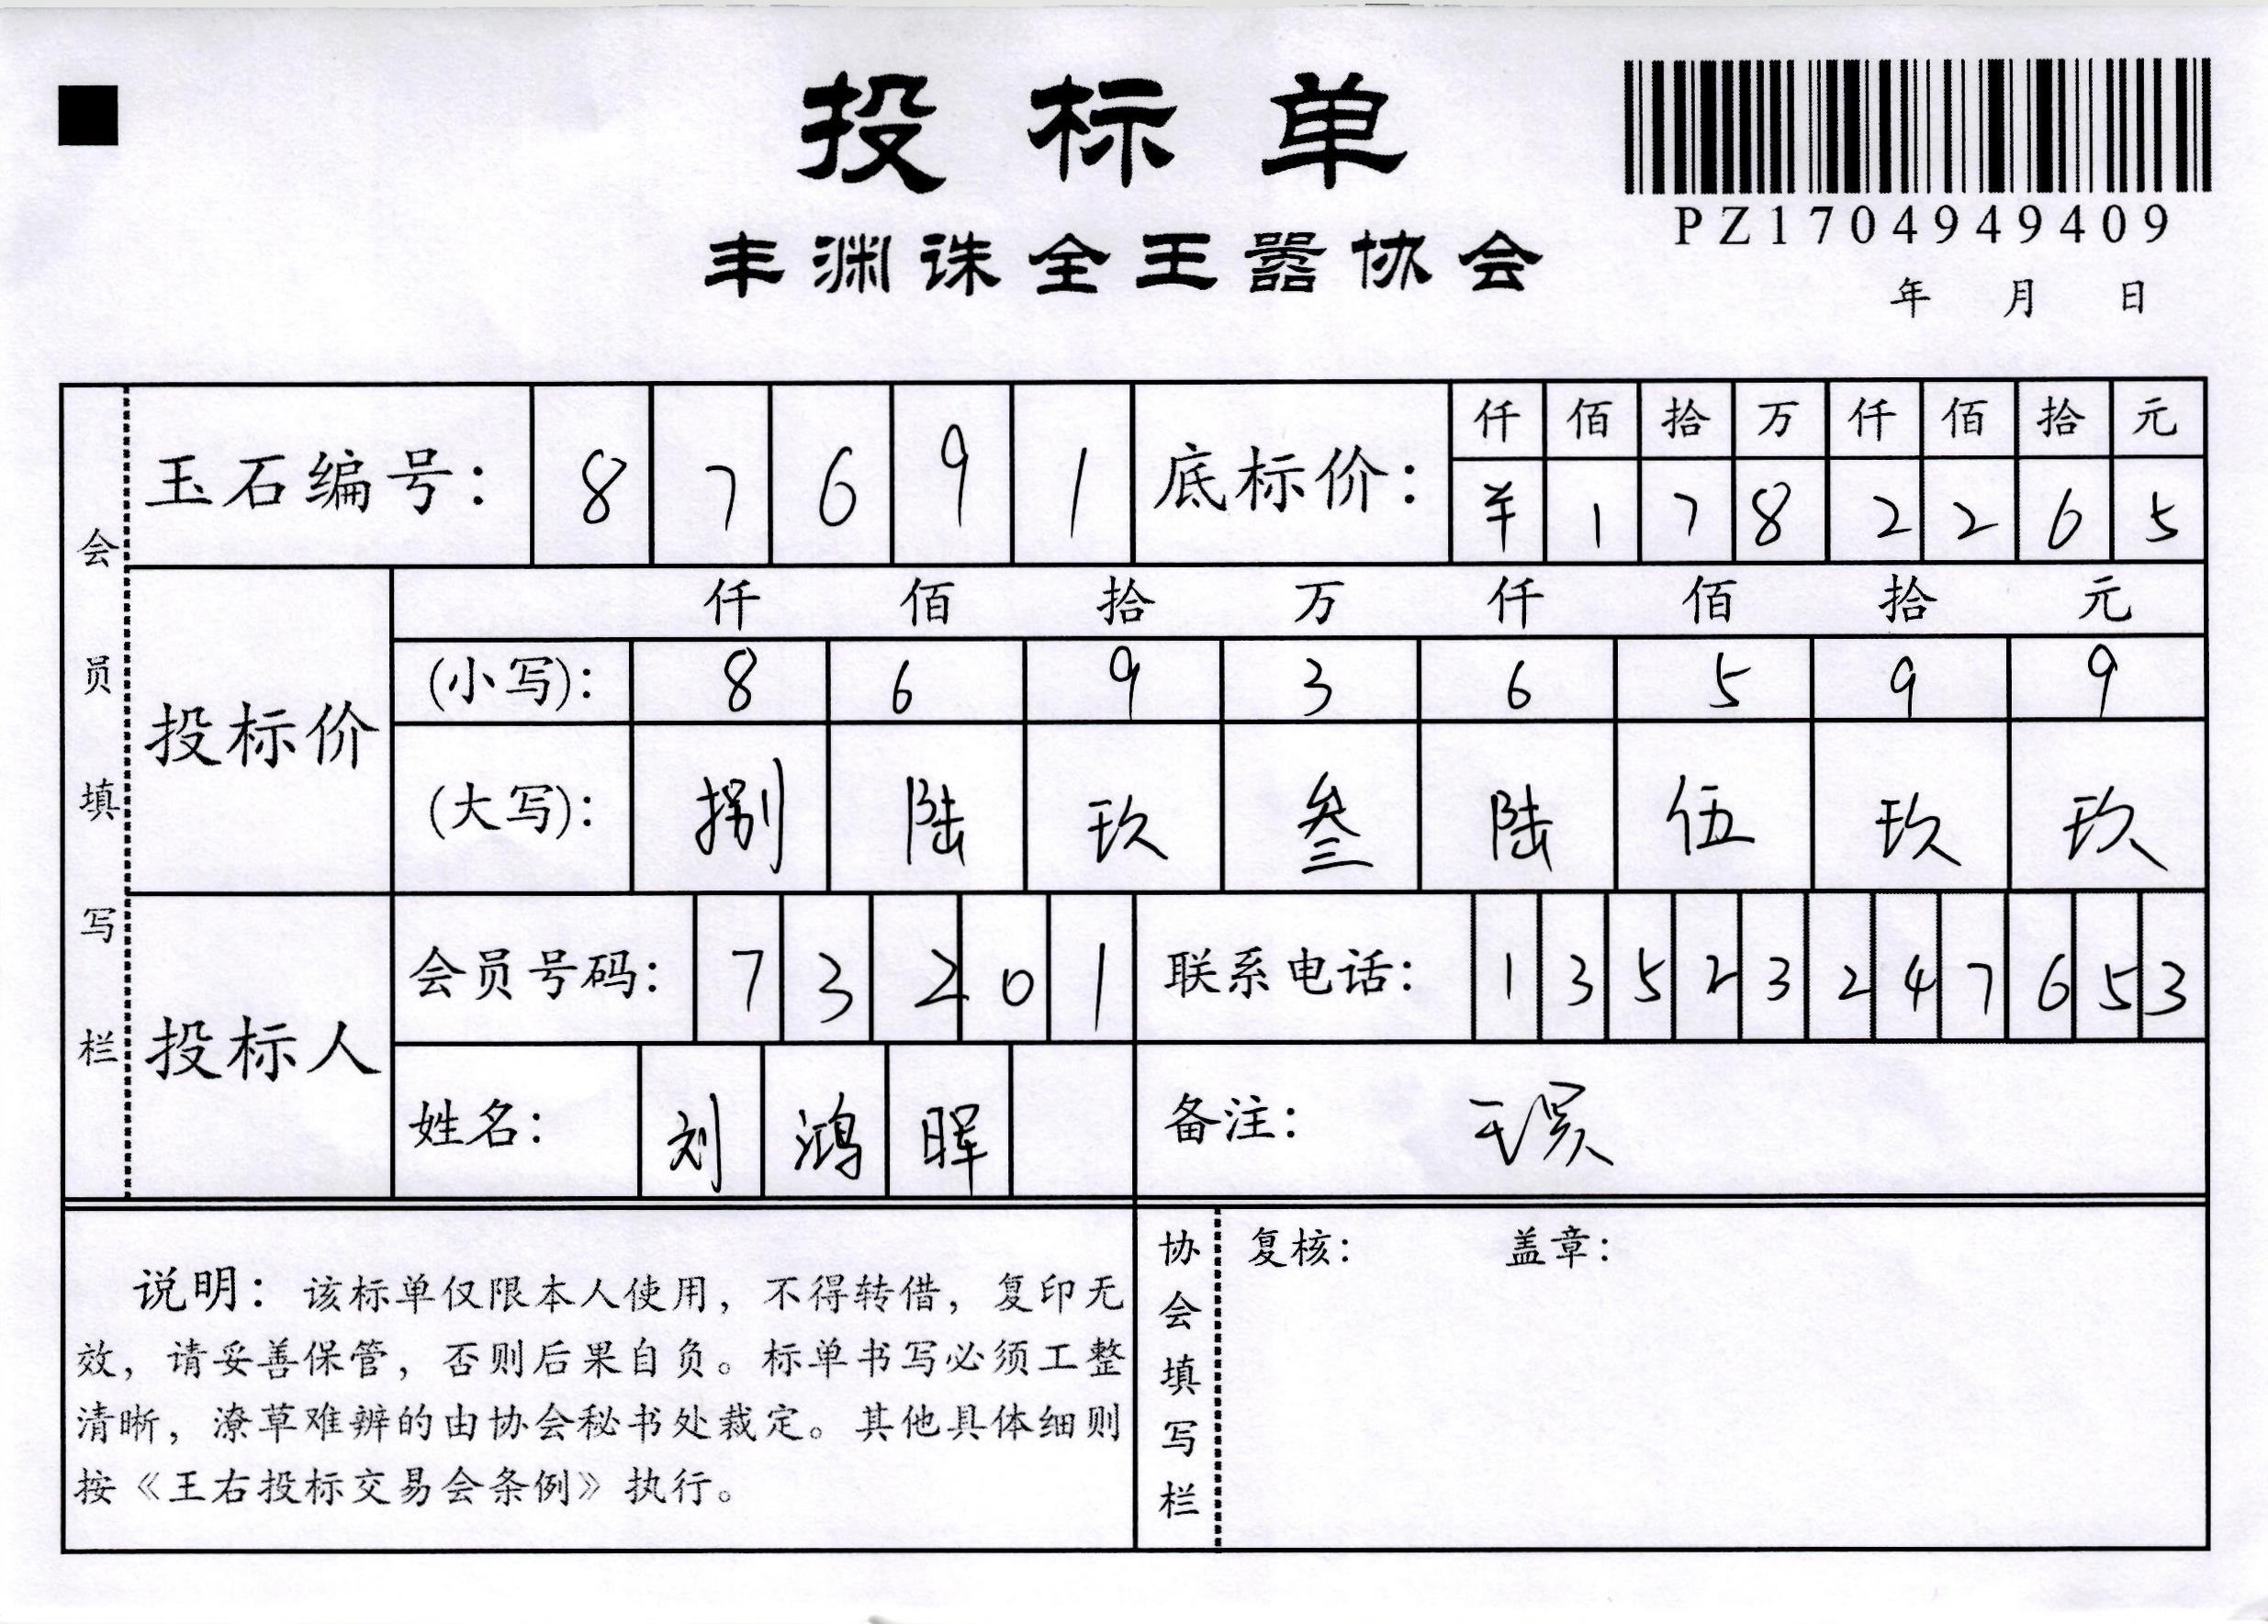 投标单
PZ1704949409
丰渊诛全王嚣协会
年 月 日
会员填写栏
玉石编号: 8 7 6 9 1
底标价: 仟 佰 拾 万 仟 佰 拾 元
¥ 1 7 8 2 2 6 5
投标价
仟 佰 拾 万 仟 佰 拾 元
(小写): 8 6 9 3 6 5 9 9
(大写): 捌 陆 玖 叁 陆 伍 玖 玖
投标人
会员号码: 7 3 2 0 1
联系电话: 1 3 5 2 3 2 4 7 6 5 3
姓名: 刘 鸿 晖
备注:
说明: 该标单仅限本人使用, 不得转借, 复印无
效, 请妥善保管, 否则后果自负。标单书写必须工整
清晰, 潦草难辨的由协会秘书处裁定。其他具体细则
按《王右投标交易会条例》执行。
协会填写栏
复核: 盖章: